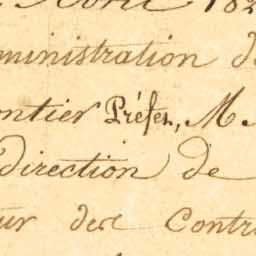 Avril 182
ministration d
ntier Préfet, M.
direction de
ur des Contr